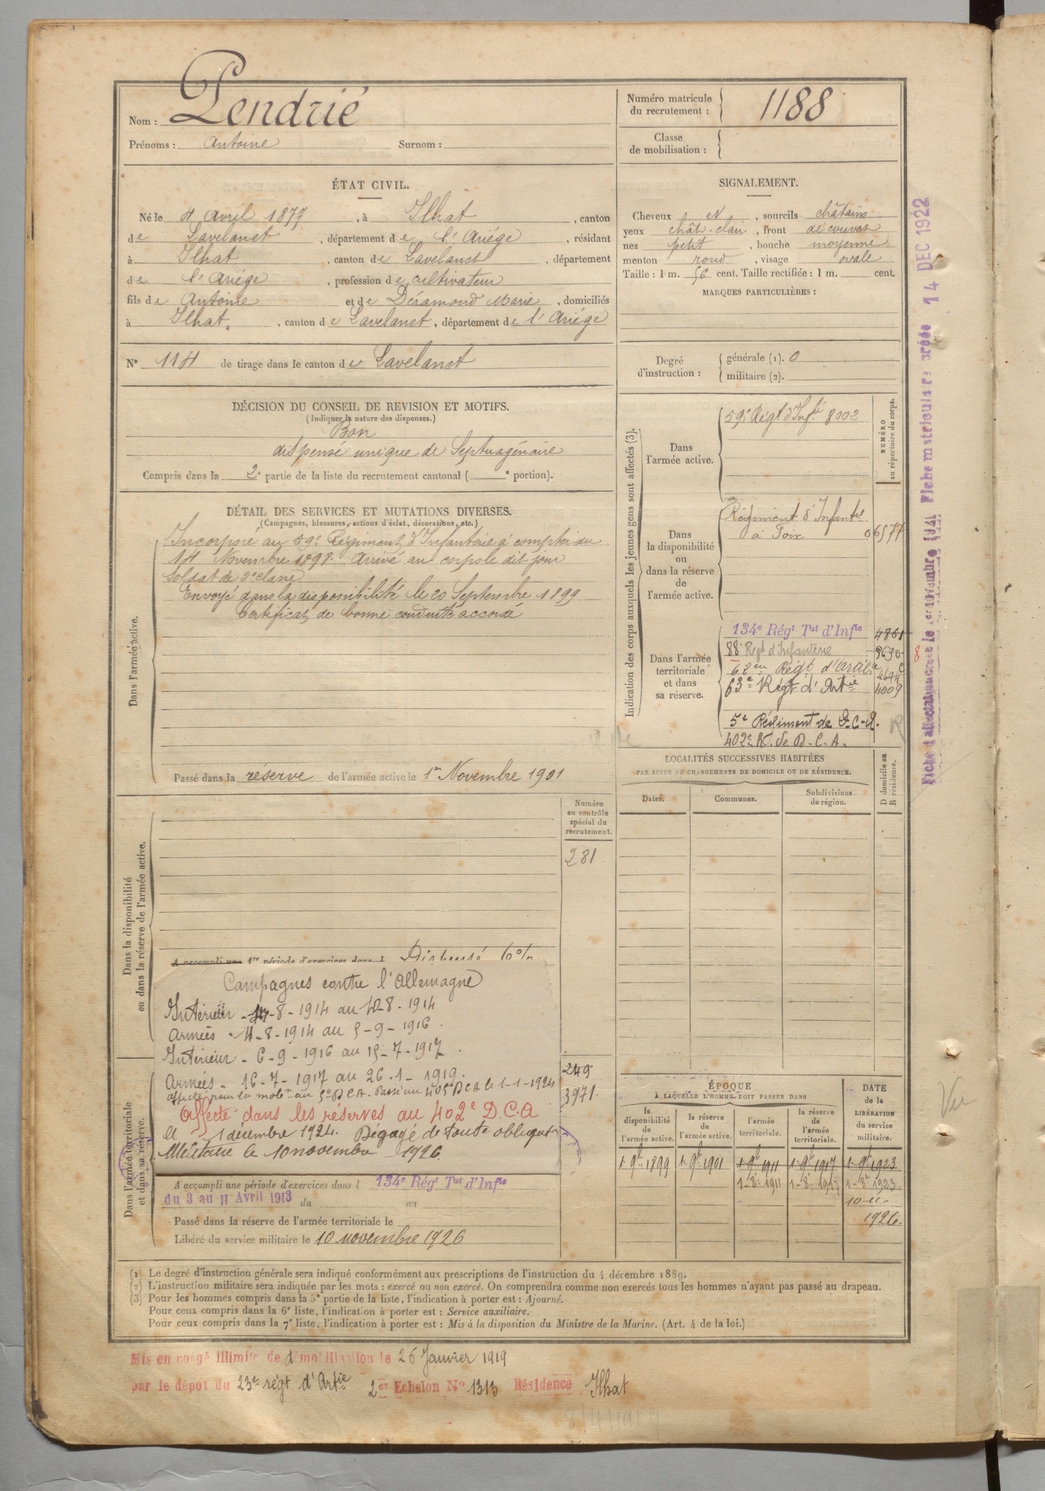 Nom : Pendrié
Prénoms : Antoine Surnom :
Numéro matricule du recrutement : 1188
Classe de mobilisation :
ÉTAT CIVIL.
Né le 4 Avril 1877, à Ilhat, canton
de Lavelanet, département de l'Ariége, résidant
à Ilhat, canton de Lavelanet, département
de l'Ariége, profession de cultivateur
fils de Antoine et de Déramond Marie, domiciliés
à Ilhat, canton de Lavelanet, département de l'Ariége
N° 114 de tirage dans le canton de Lavelanet
SIGNALEMENT.
Cheveux N, sourcils châtains
yeux chât. clair, front découvert
nez petit, bouche moyenne
menton rond, visage ovale
Taille : 1 m. 56 cent. Taille rectifiée : 1 m. cent.
MARQUES PARTICULIÈRES :
Degré d'instruction : générale (1). 0
militaire (2).
DÉCISION DU CONSEIL DE REVISION ET MOTIFS.
(Indiquer la nature des dispenses.)
Bon
dispensé unique de Septuagénaire
Compris dans la 2e partie de la liste du recrutement cantonal ( e portion).
DÉTAIL DES SERVICES ET MUTATIONS DIVERSES.
(Campagnes, blessures, actions d'éclat, décorations, etc.)
Dans l'armée active.
Incorporé au 59e Régiment d'Infanterie à compter du
14 Novembre 1898. Arrivé au corps le dit jour
soldat de 2e classe
Envoyé dans la disponibilité le 20 Septembre 1899
Certificat de bonne conduite accordé
Passé dans la réserve de l'armée active le 1er Novembre 1901
Indication des corps auxquels les jeunes gens sont affectés (3).
NUMÉRO au répertoire du corps.
Dans l'armée active.
59e Régt d'Infie 8002
Dans la disponibilité ou dans la réserve de l'armée active.
Régiment d'Infantie
à Foix 06577
Dans l'armée territoriale et dans sa réserve.
134e Régt Tal d'Infie 4861
88e Regt d'Infanterie
Régt d'Artie
63e Régt d'Artie 4009
5e Régiment de D.C.A.
402e R. de D.C.A.
LOCALITÉS SUCCESSIVES HABITÉES
PAR SUITE DE CHANGEMENTS DE DOMICILE OU DE RÉSIDENCE.
Dates. Communes. Subdivisions de région. D domicile ou R résidence.
Numéro au contrôle spécial du recrutement.
281
Dans la disponibilité ou dans la réserve de l'armée active.
A accompli une 1re période d'exercices dans l
Campagnes contre l'Allemagne
Intérieur - 4-8-1914 au
Armées - au 5-9-1916.
Intérieur - 6-9-1916 au 15-7-1917.
Armées - 16-7-1917 au 26-1-1919.
249
3971
Affecté dans les réserves au 402e D.C.A
le 1 décembre 1924. Dégagé de toute obligat
Militaire le 10 novembre 1926
Dans l'armée territoriale et dans sa réserve.
A accompli une période d'exercices dans l 134e Régt Tal d'Infie
du 3 au 11 Avril 1913 du au
Passé dans la réserve de l'armée territoriale le
Libéré du service militaire le 10 novembre 1926
ÉPOQUE
À LAQUELLE L'HOMME DOIT PASSER DANS
la disponibilité de l'armée active. la réserve de l'armée active. l'armée territoriale. la réserve de l'armée territoriale. DATE de la LIBÉRATION du service militaire.
1 9e 1899 1 9e 1901 1 9e 1911 1 9e 1917 1 9e 1923
1-8-1911 1-8-1917 1-8-1923
1926.
(1) Le degré d'instruction générale sera indiqué conformément aux prescriptions de l'instruction du 4 décembre 1889.
(2) L'instruction militaire sera indiquée par les mots : exercé ou non exercé. On comprendra comme non exercés tous les hommes n'ayant pas passé au drapeau.
(3) Pour les hommes compris dans la 5e partie de la liste, l'indication à porter est : Ajourné.
Pour ceux compris dans la 6e liste, l'indication à porter est : Service auxiliaire.
Pour ceux compris dans la 7e liste, l'indication à porter est : Mis à la disposition du Ministre de la Marine. (Art. 4 de la loi.)
Mis en congé illimité de démobilisation le 26 Janvier 1919
par le dépôt du 23e régt d'Artie 2e Echelon N° 1313 Résidence Ilhat
14 DEC 1922
Vu